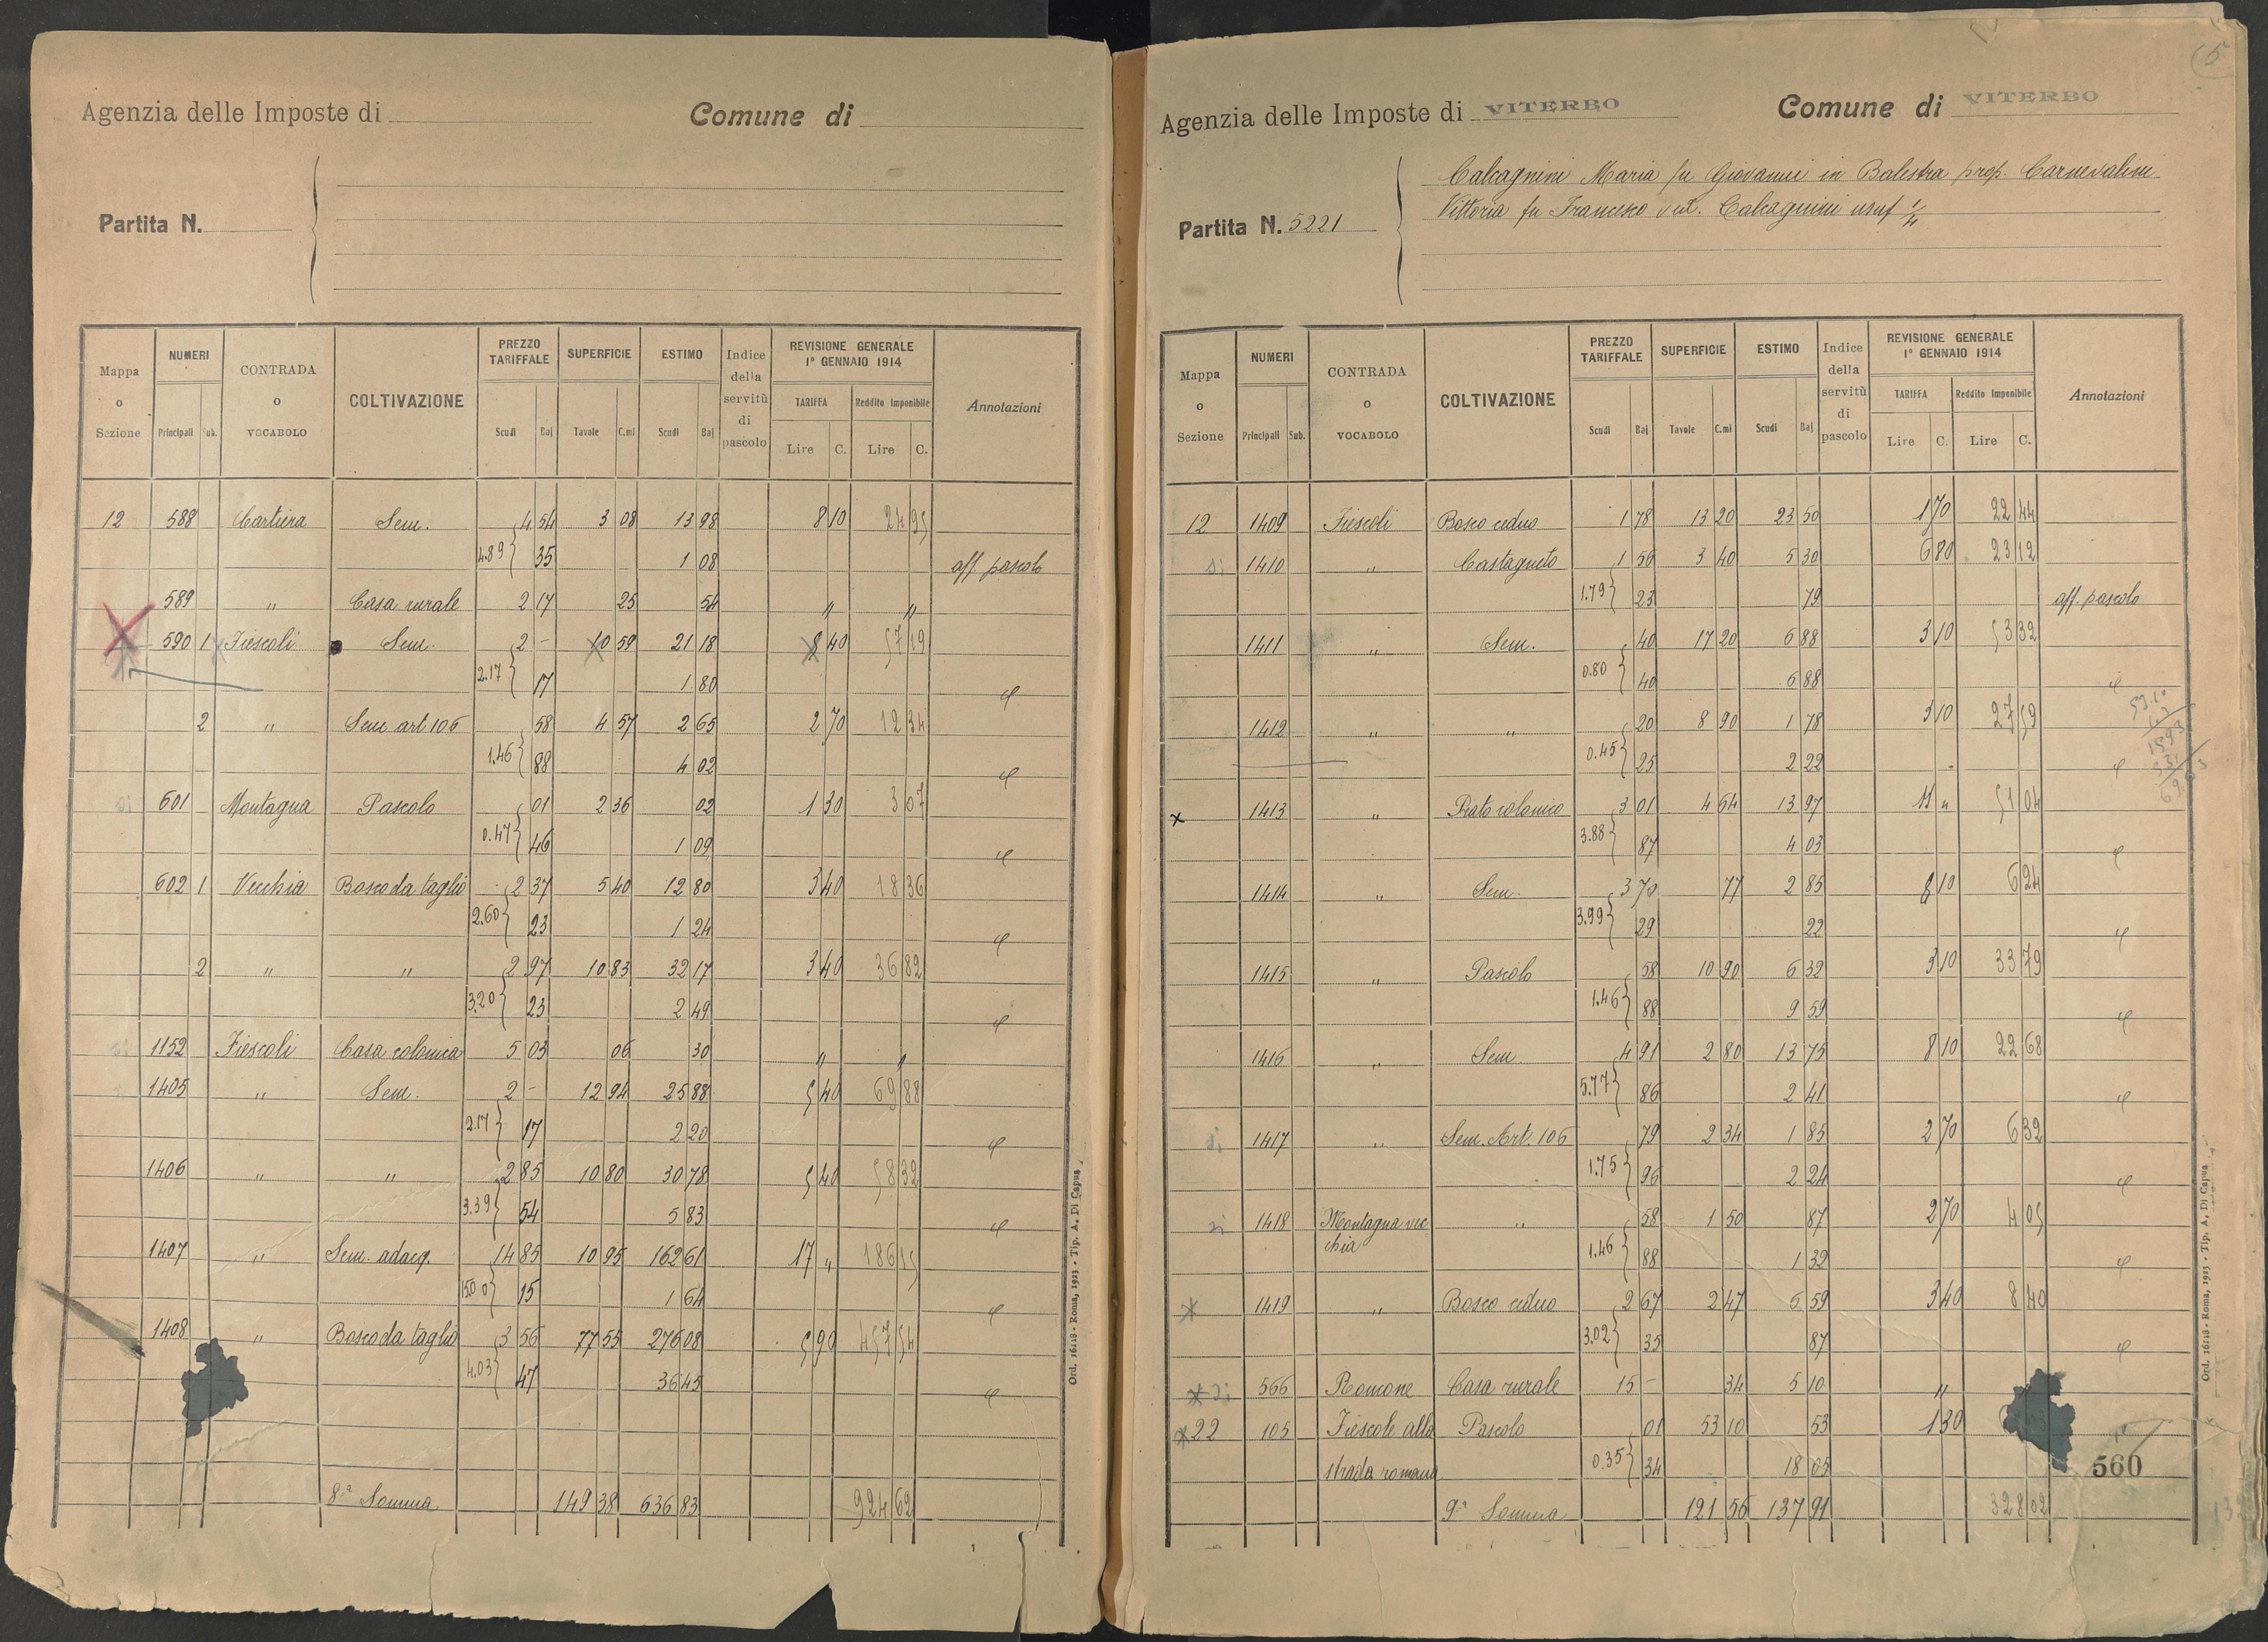 Agenzia delle Imposte di
Comune di
Partita N.
Mappa o Sezione | NUMERI Principali Sub. | CONTRADA o VOCABOLO | COLTIVAZIONE | PREZZO TARIFFALE Scudi Baj | SUPERFICIE Tavole C.mi | ESTIMO Scudi Baj | Indice della servitù di pascolo | REVISIONE GENERALE 1° GENNAIO 1914 TARIFFA Lire C. Reddito Imponibile Lire C. | Annotazioni
12 588 Cartiera Sem. 4 54 3 08 13 98 8 10 24 95
4.89 } 35 1 08 aff. pascolo
589 " Casa rurale 2 17 25 54 " "
590 1 Fiescoli Sem. 2 - 10 59 21 18 5 40 57 19
2.17 } 17 1 80 φ
2 " Sem. art 106 58 4 57 2 65 2 70 12 34
1.46 } 88 4 02 φ
601 Montagna Pascolo 01 2 36 02 1 30 3 07
0.47 } 46 1 09 φ
602 1 Vecchia Bosco da taglio 2 37 5 40 12 80 3 40 18 36
2.60 } 23 1 24 φ
2 " " 2 97 10 83 32 17 3 40 36 82
3.20 } 23 2 49 φ
1152 Fiescoli Casa colonica 5 03 06 30 " "
1405 " Sem. 2 - 12 94 25 88 5 40 69 88
2.17 } 17 2 20 φ
1406 " " 2 85 10 80 30 78 5 40 58 32
3.39 } 54 5 83 φ
1407 " Sem. adacq. 14 85 10 95 162 61 17 " 186 15
15.00 } 15 1 64 φ
1408 " Bosco da taglio 3 56 77 55 276 08 5 90 457 54
4.03 } 47 36 45 φ
8.a Somma 149 38 636 83 924 62
Ord. 16118 - Roma, 1923 - Tip. A. Di Capua
5
Agenzia delle Imposte di VITERBO
Comune di VITERBO
Partita N. 5221
Calcagnini Maria fu Giovanni in Balestra prop. Carnevalini
Vittoria fu Francesco ved. Calcagnini usuf 1/4
Mappa o Sezione | NUMERI Principali Sub. | CONTRADA o VOCABOLO | COLTIVAZIONE | PREZZO TARIFFALE Scudi Baj | SUPERFICIE Tavole C.mi | ESTIMO Scudi Baj | Indice della servitù di pascolo | REVISIONE GENERALE 1° GENNAIO 1914 TARIFFA Lire C. Reddito Imponibile Lire C. | Annotazioni
12 1409 Fiescoli Bosco ceduo 1 78 13 20 23 50 1 70 22 44
si 1410 " Castagneto 1 56 3 40 5 30 6 80 23 12
1.79 } 23 79 aff. pascolo
1411 " Sem. 40 17 20 6 88 3 10 53 32
0.80 } 40 6 88 φ
1412 " " 20 8 90 1 78 3 10 27 59
0.45 } 25 2 22 φ
x 1413 " Prato colonico 3 01 4 64 13 97 11 " 51 04
3.88 } 87 4 03 φ
1414 " Sem. 3 70 77 2 85 8 10 6 24
3.99 } 29 22 φ
1415 " Pascolo 58 10 90 6 32 3 10 33 79
1.46 } 88 9 59 φ
1416 " Sem 4 91 2 80 13 75 8 10 22 68
5.77 } 86 2 41 φ
si 1417 " Sem. Art. 106 79 2 34 1 85 2 70 6 32
1.75 } 96 2 24 φ
si 1418 Montagna vec " 58 1 50 87 2 70 4 05
chia 1.46 } 88 1 32 φ
x 1419 " Bosco ceduo 2 67 2 47 6 59 3 40 8 40
3.02 } 35 87 φ
x si 566 Roncone Casa rurale 15 - 34 5 10 "
x 22 105 Fiescole alla Pascolo 01 53 10 53 1 30
strada romana 0.35 } 34 18 05
560
9.a Somma 121 56 137 91 328 02
Ord. 16118 - Roma, 1923 - Tip. A. Di Capua